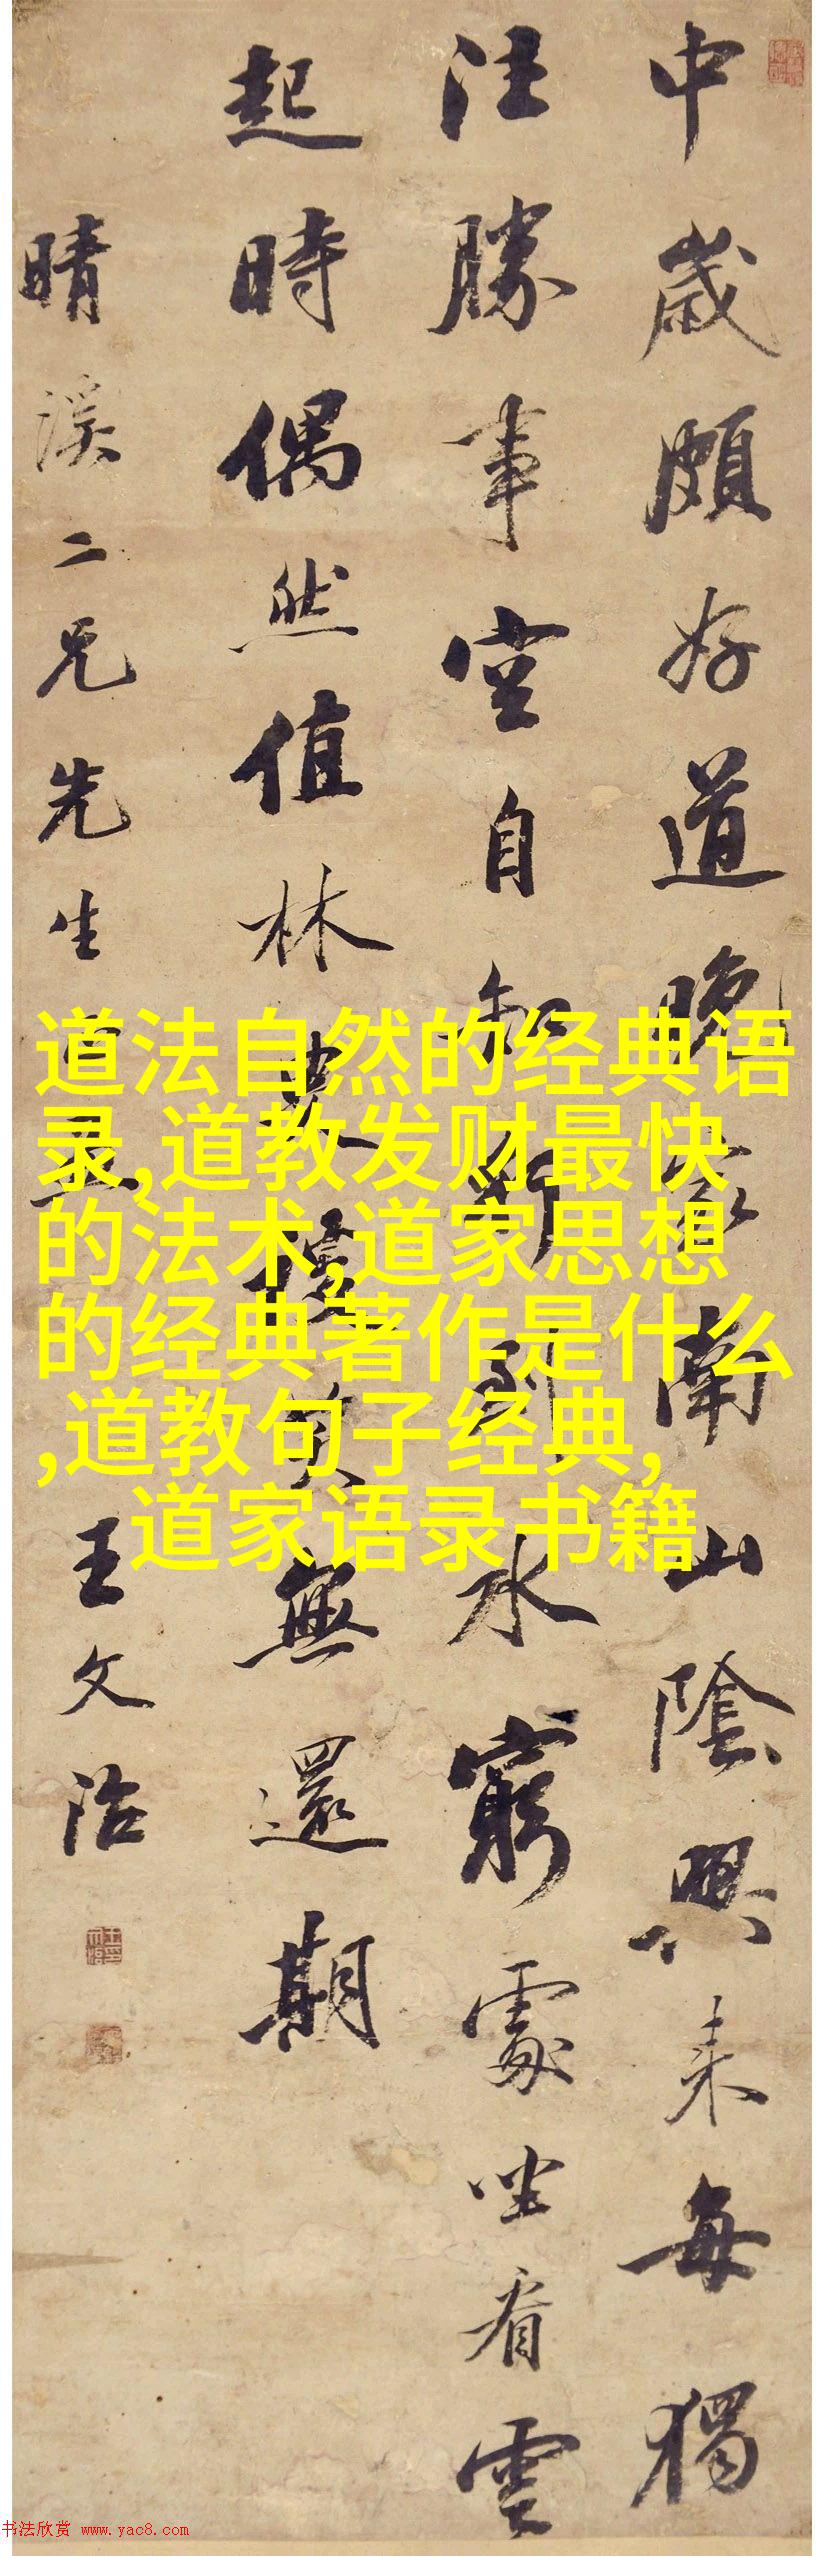 中歲頗好道晚家南山陰興來每獨
往勝事空自知行到水窮處坐看雲
起時偶然值林叟談笑無還期
晴溪二兄先生
王文治
道法自然的经典语
录,道教发财最快
的法术,道家思想
的经典著作是什么
,道教句子经典,
道家语录书籍
书法欣赏 www.yac8.com